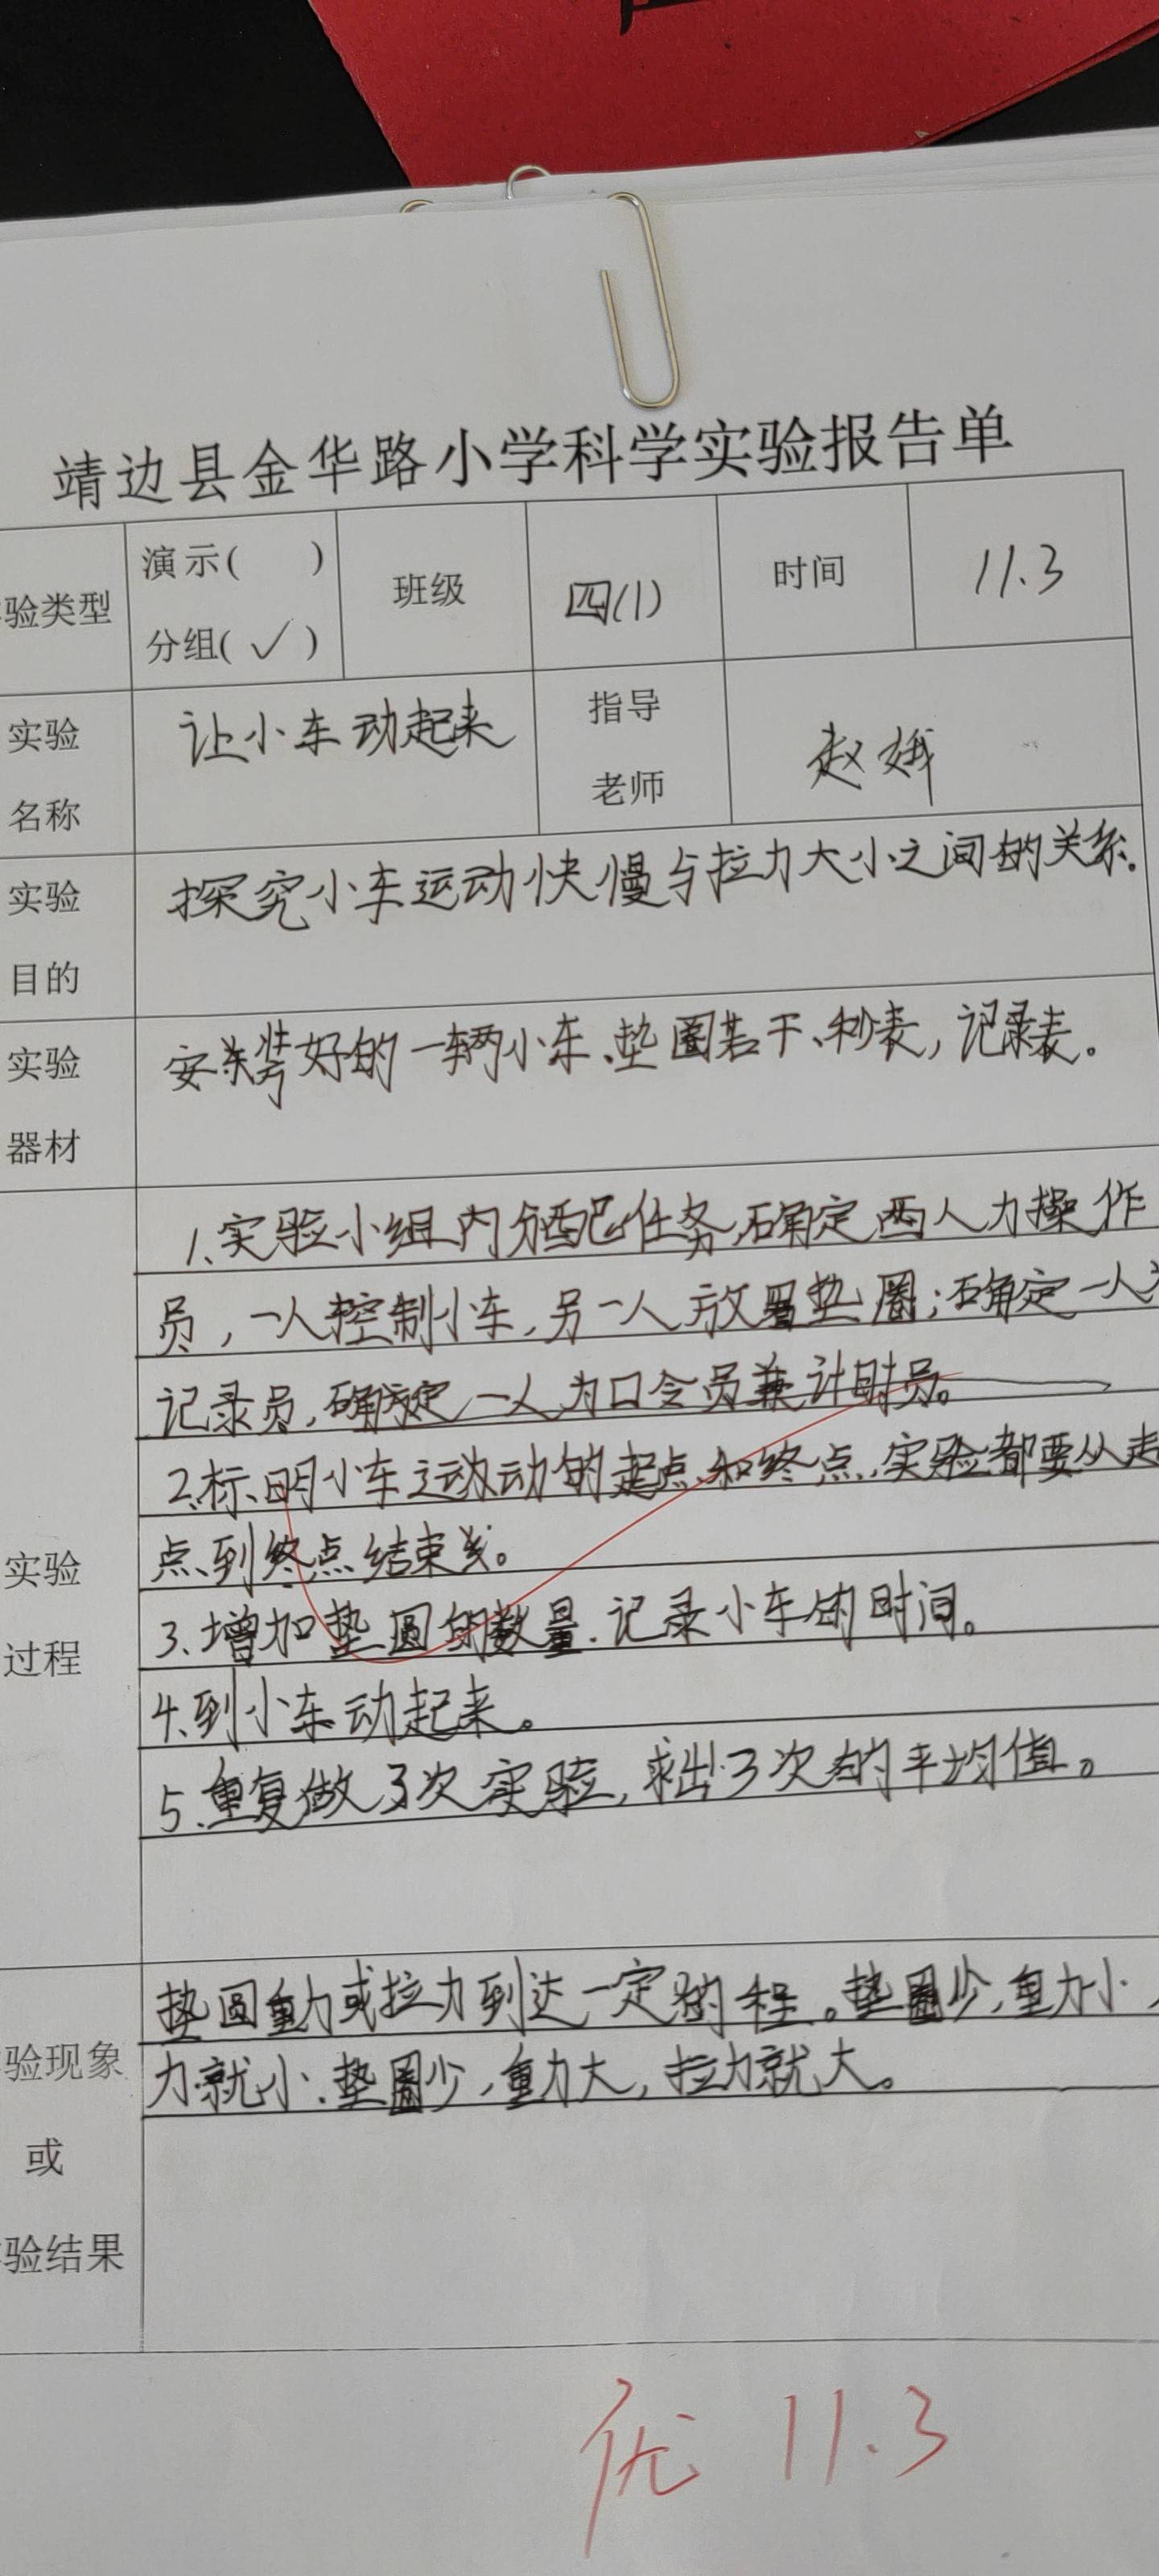 靖边县金华路小学科学实验报告单
验类型
演示( )
分组(✓)
班级
四(1)
时间
11.3
实验
名称
让小车动起来
指导
老师
赵娥
实验
目的
探究小车运动快慢与拉力大小之间的关系.
实验
器材
安装好的一辆小车、垫圈若干、秒表,记录表。
实验
过程
1、实验小组内分配任务,确定两人力操作
员,一人控制小车,另一人放置垫圈;确定一人
记录员,确定一人为口令员兼计时员。
2、标明小车运动的起点和终点,实验都要从起
点到终点结束。
3.增加垫圆的数量.记录小车的时间。
4、到小车动起来。
5、重复做3次实验,求出3次的平均值。
验现象
或
验结果
垫圆重力或拉力到达一定的程。垫圈少,重力小,
力就小.垫圈少,重力大,拉力就大。
优 11.3